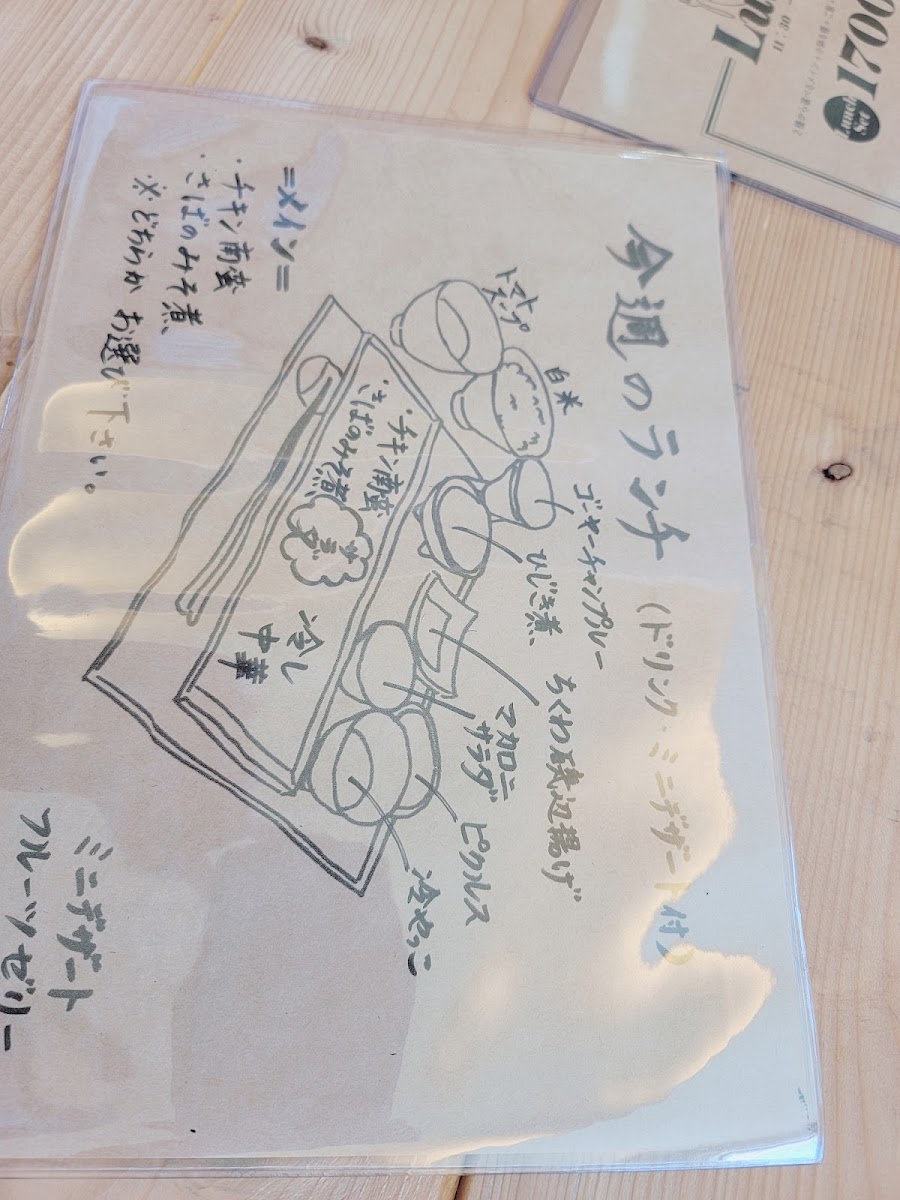 今週のランチ (ドリンク・ミニデザート付)
トマト
スープ
白米
ゴーヤーチャンプルー
ひじき煮
ちくわ磯辺揚げ
マカロニ
サラダ
ピクルス
冷やっこ
・チキン南蛮
・さばのみそ煮
サラダ
冷し
中華
=メイン=
・チキン南蛮
・さばのみそ煮
※どちらかお選び下さい。
ミニデザート
フルーツゼリー
Lunch
Set
11:30 -